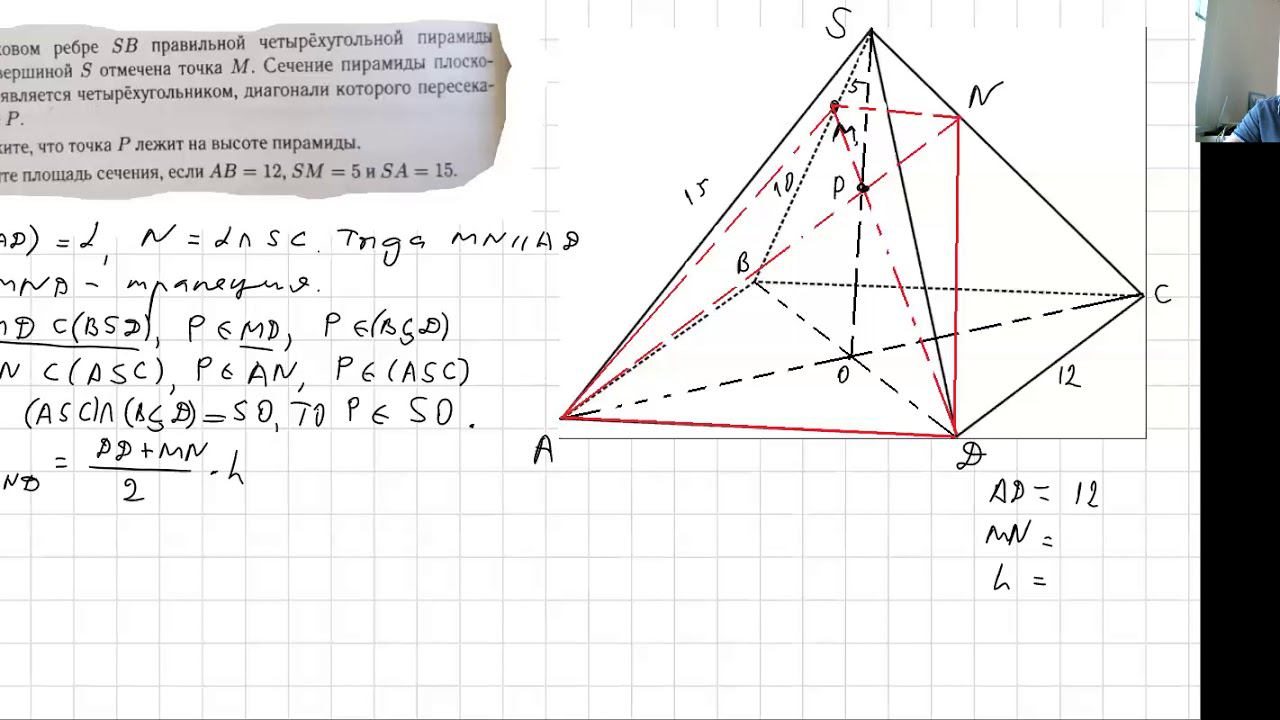 ковом ребре SB правильной четырёхугольной пирамиды
вершиной S отмечена точка M. Сечение пирамиды плоско-
является четырёхугольником, диагонали которого пересека-
P.
ките, что точка P лежит на высоте пирамиды.
те площадь сечения, если AB = 12, SM = 5 и SA = 15.
AD) = α, N = α∩SC. Тогда MN∥AD
MND - трапеция.
MD ⊂ (BSD), P∈MD, P∈(BSD)
N ⊂ (ASC), P∈AN, P∈(ASC)
(ASC)∩(BSD)=SO, то P∈SO.
ND = DD+MN / 2 · h
S
5
M
N
15
10
P
B
C
O
12
A
D
AD = 12
MN =
h =